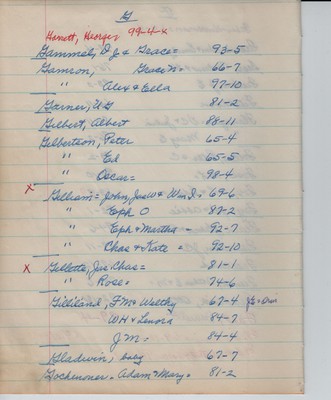 G
Hewett, George 99-4-x
Gammel, D J & Grace = 93-5
Gamson, Grace N = 66-7
" , Alex & Ella 97-10
Garner, U G 81-2
Gilbert, Albert 88-11
Gilbertson, Peter 65-4
" Ed 65-5
" Oscar = 98-4
x Gilliam = John, Jno W & Wm J. 69-6
" Eph O 83-2
" Eph & Martha - 92-7
" Chas & Kate = 92-10
x Gillette, Jas. Chas = 81-1
" Rose = 74-6
Gilliland, F M & Welthy 67-4
W H & Lenora 84-7
J M = 84-4
Gladwin, 67-7
Gochenoner - Adam & Mary = 81-2